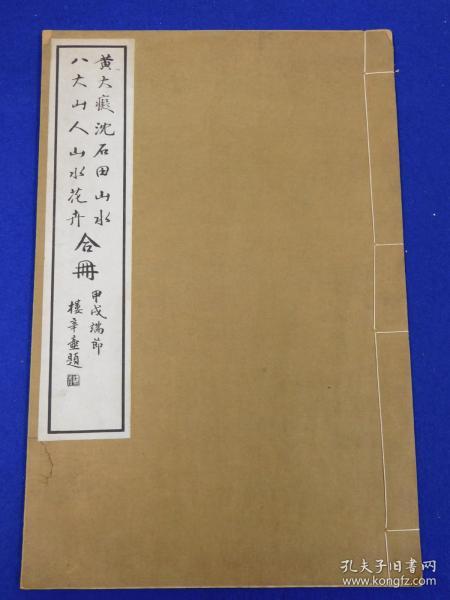 黄大癡沈石田山水
八大山人山水花卉
合冊
甲戌端節
樓辛壺題
孔夫子旧书网
www.kongfz.com